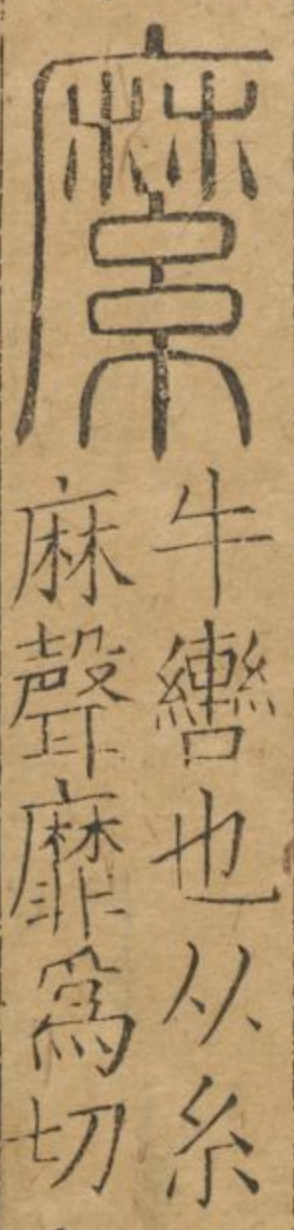 縻
牛轡也从糸
麻聲靡爲切